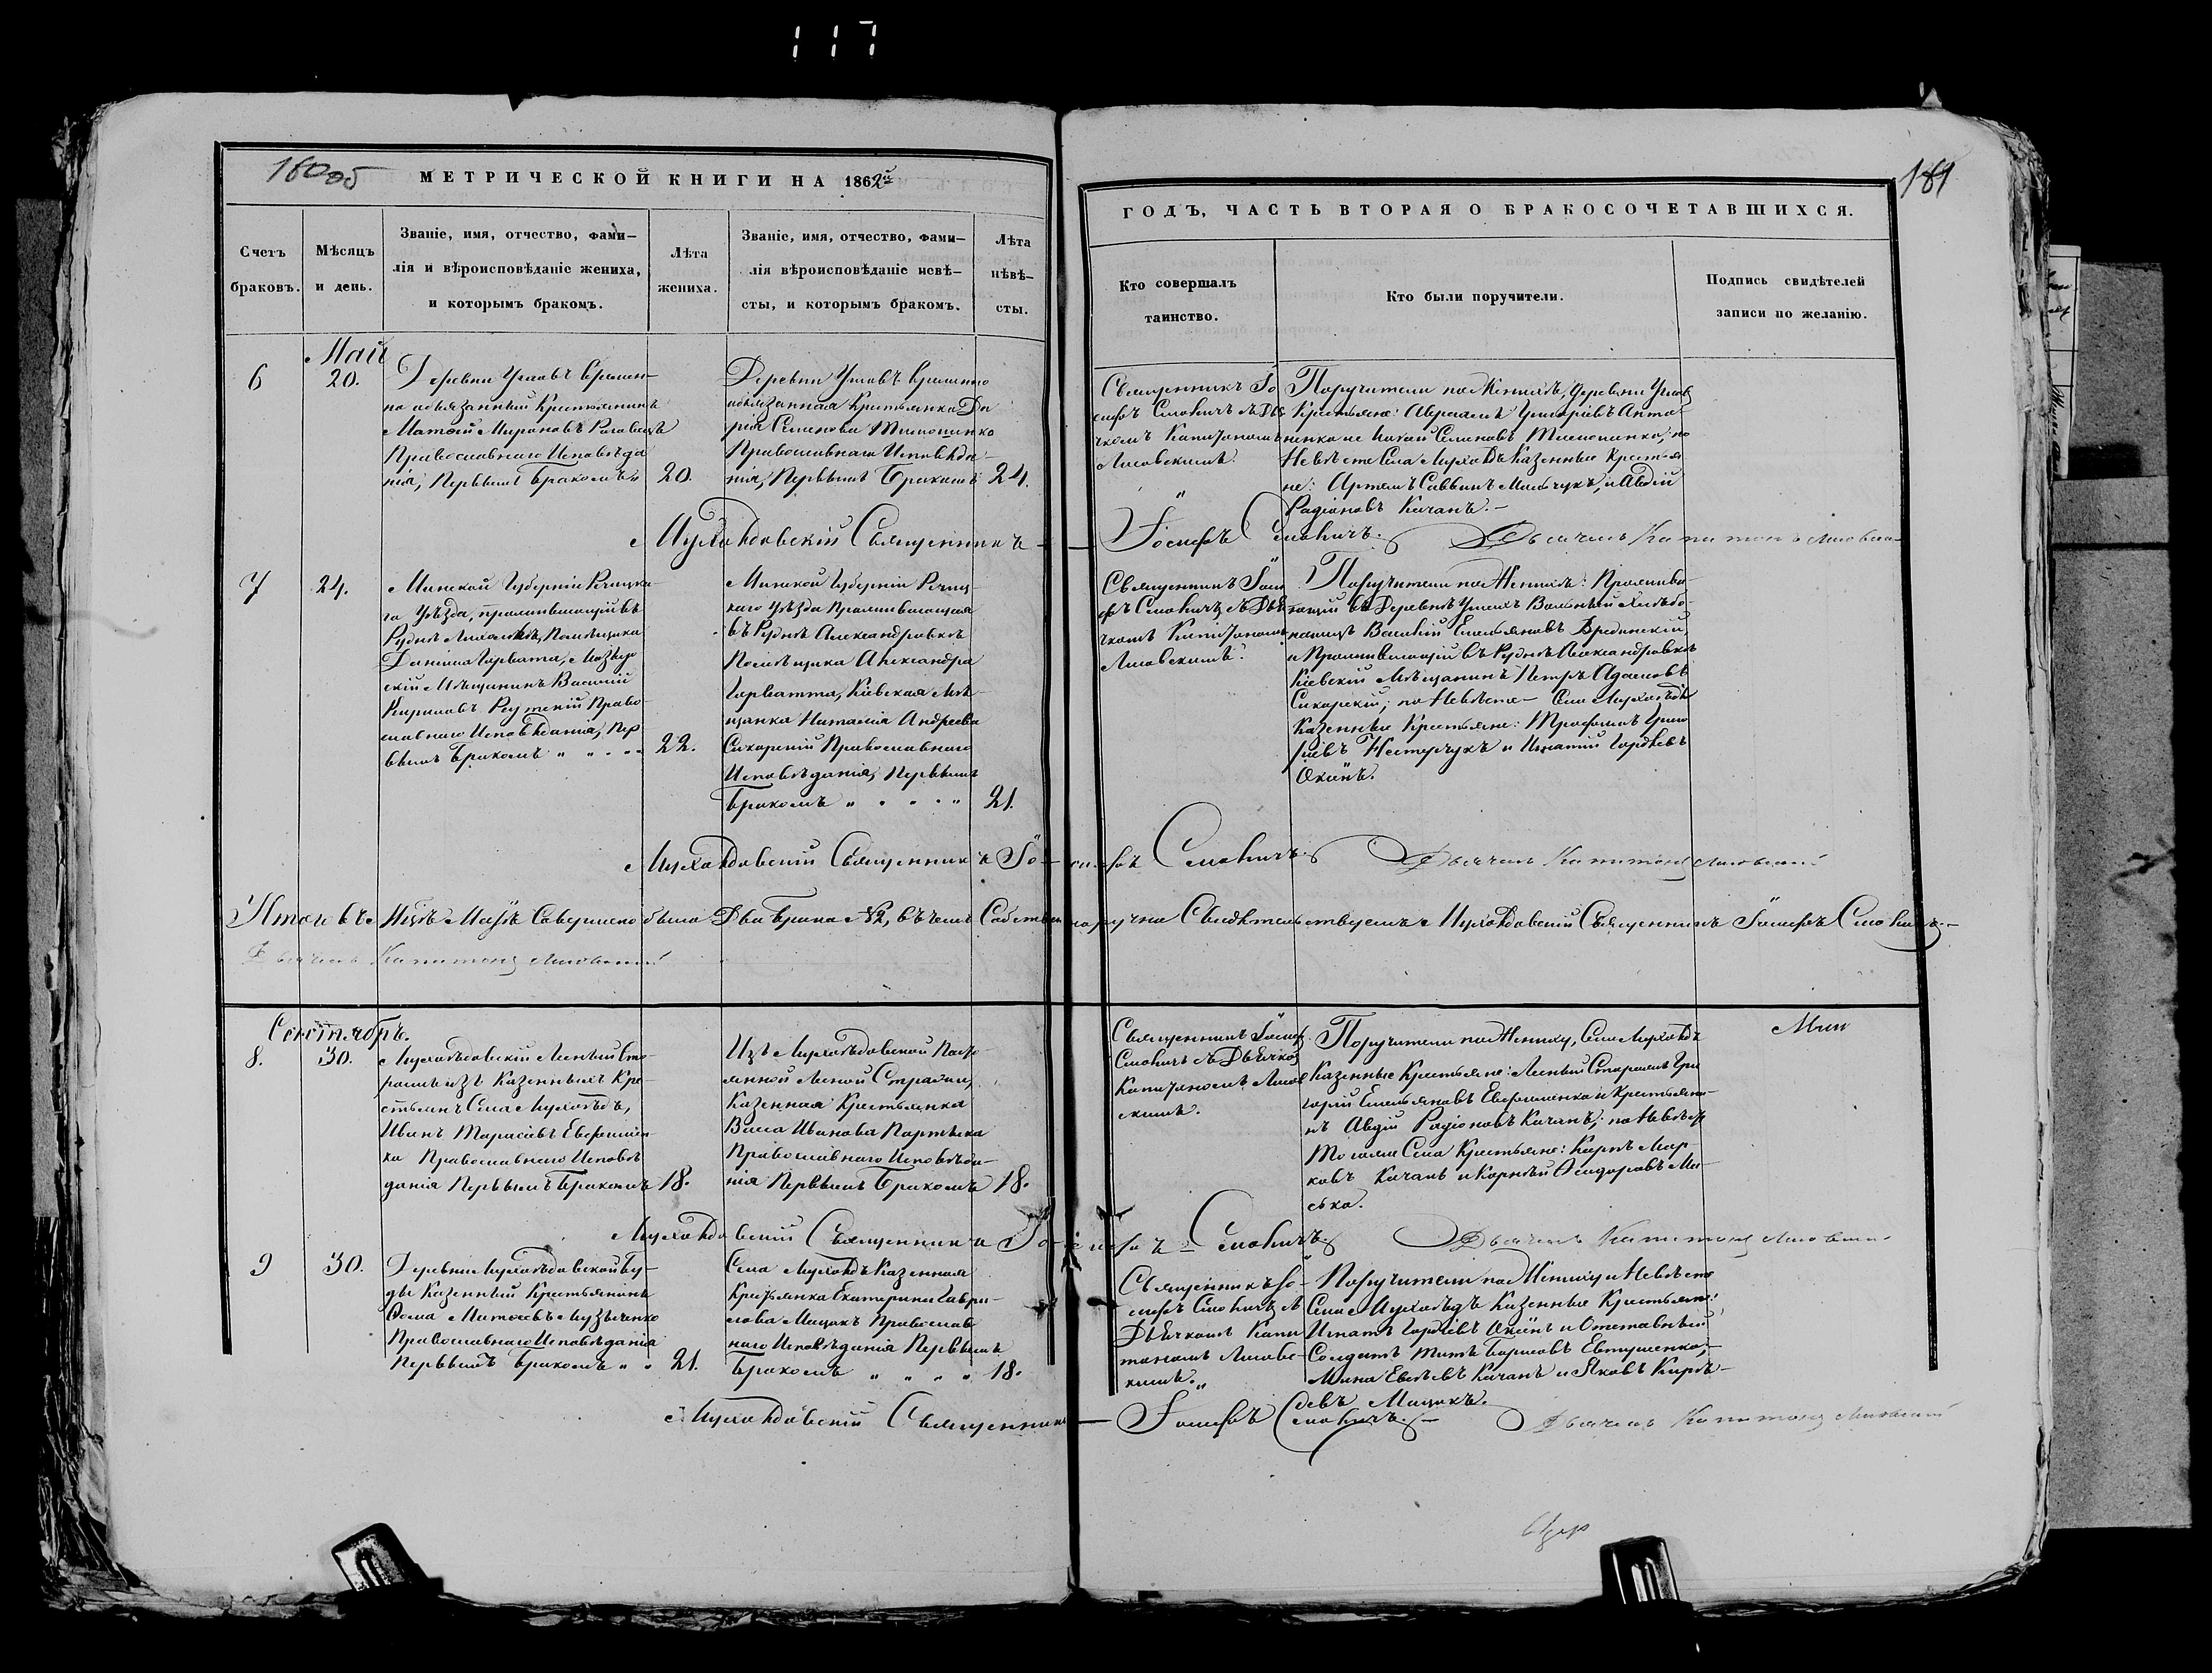 117
180 об
МЕТРИЧЕСКОЙ КНИГИ НА 1862й
Счетъ браковъ.
Мѣсяцъ и день.
Званіе, имя, отчество, фами-
лія и вѣроисповѣданіе жениха,
и которымъ бракомъ.
Лѣта жениха.
Званіе, имя, отчество, фами-
лія вѣроисповѣданіе невѣ-
сты, и которымъ бракомъ.
Лѣта
нѣвѣ-
сты.
181
ГОДЪ, ЧАСТЬ ВТОРАЯ О БРАКОСОЧЕТАВШИХСЯ.
Кто совершалъ
таинство.
Кто были поручители.
Подпись свидѣтелей
записи по желанію.
Май
6
20.
Деревни Углавъ Времен-
но обязанный Крестьянинъ
Матѳій Мироновъ
Православнаго Исповѣда
нія, Первымъ Бракомъ
20.
Деревни Углавъ Временно
обязанная Крестьянка Да
рія Семенова Тимошенко
Православнаго Исповѣда-
нія, Первымъ Бракомъ
24.
Священникъ Іо
сифъ Смоличъ съ Дья
чкомъ Капитономъ
Лисовскимъ.
Поручители по Женихѣ, деревни Углав
Крестьяне: Авраамъ Григорьевъ Анто
ненко и Семеновъ Тимошенко, по
Невѣсте Села Мухоѣдъ Казенные Крестья
не: Артемъ Саввинъ Мельчукъ, и Авдій
Радіоновъ Качанъ.-
Мухоѣдовскій Священникъ - Іосифъ Смоличъ. Дьячекъ Капитонъ Лисовскій
7
24.
Минской Губерніи Рѣчицка-
го Уѣзда, проживающій въ
Руднѣ Помѣщика
Даніила Горвата, Мозыр
скій Мѣщанинъ Василій
Кириловъ Реутскій Право-
славнаго Исповѣданія, Пер
вымъ Бракомъ
22.
Минской Губерніи Рѣчиц-
каго Уѣзда Проживающая
въ Руднѣ Александровкѣ
Помѣщика Александра
Горватта, Кіевская Мѣ-
щанка Наталія Андреева
Сикорскій Православнаго
Исповѣданія, Первымъ
Бракомъ
21.
Священникъ Іоси
фъ Смоличъ съ Дья
чкомъ Капитономъ
Лисовскимъ.
Поручители по Женихѣ: Прожива-
ющій въ Деревнѣ Углахъ Вольный Хлѣбо-
пашецъ Василій Емельяновъ
и Проживающій въ Руднѣ Александровкѣ
Кіевскій Мѣщанинъ Петръ Адамовъ
Сикорскій; по Невѣсте - Села Мухоѣдъ
Казенные Крестьяне: Трофимъ Григо
ріевъ Нестерчукъ и Игнатій Гордѣевъ
Якимъ.
Мухоѣдовскій Священникъ Іосифъ Смоличъ. Дьячекъ Капитонъ Лисовскій
Итого въ Мцѣ Маѣ Совершено было Два Брака №2, въ чемъ Собственноручно Свидѣтельствуемъ Мухоѣдовскій Священникъ Іосифъ Смоличъ.-
Дьячекъ Капитонъ Лисовскій
Сентябрь.
8.
30.
Мухоѣдовскій Лесный Сто
рожъ изъ Казенныхъ Кре-
стьянъ Села Мухоѣдъ,
Иванъ Тарасовъ Евфимен
ко Православнаго Исповѣ
данія Первымъ Бракомъ
18.
Изъ Мухоѣдовской Посто
янной Лесной Стражи,
Казенная Крестьянка
Васса Иванова
Православнаго Исповѣда-
нія Первымъ Бракомъ
18.
Священникъ Іосиф
Смоличъ съ Дьячко
Капитономъ Лисов
скимъ.
Поручители по Жениху, Села Мухоѣдъ
Казенные Крестьяне: Лесный Сторожъ Гри
горій Емельяновъ Евфименко и Крестьяни-
нъ Авдій Радіоновъ Качанъ; по Невѣсте
Тогоже Села Крестьяне: Карпъ Мар-
ковъ Качанъ и Корнѣй Ѳеодоровъ
Мухоѣдовскій Священникъ Іосифъ Смоличъ. Дьячекъ Капитонъ Лисовскій
9
30.
Деревни Мухоѣдовской Бу-
ды Казенный Крестьянинъ
Ѳома Музыченко
Православнаго Исповѣданія
Первымъ Бракомъ
21.
Села Мухоѣдъ Казенная
Крестьянка Екатерина Гаври-
лова Мацакъ Православ
наго Исповѣданія Первымъ
Бракомъ
18.
Священникъ Іо-
сифъ Смоличъ съ
Дьячкомъ Капи
тономъ Лисовс-
кимъ.
Поручители по Жениху и Невѣсте
Села Мухоѣдъ Казенные Крестьяне:
Игнатъ Гордѣевъ Якимъ и Отставный
Солдатъ Титъ Борисовъ Евтушенко,
Мина Качанъ и Яковъ Кирѣ-
евъ Мацакъ.
Мухоѣдовскій Священникъ - Іосифъ Смоличъ.- Дьячекъ Капитонъ Лисовскій